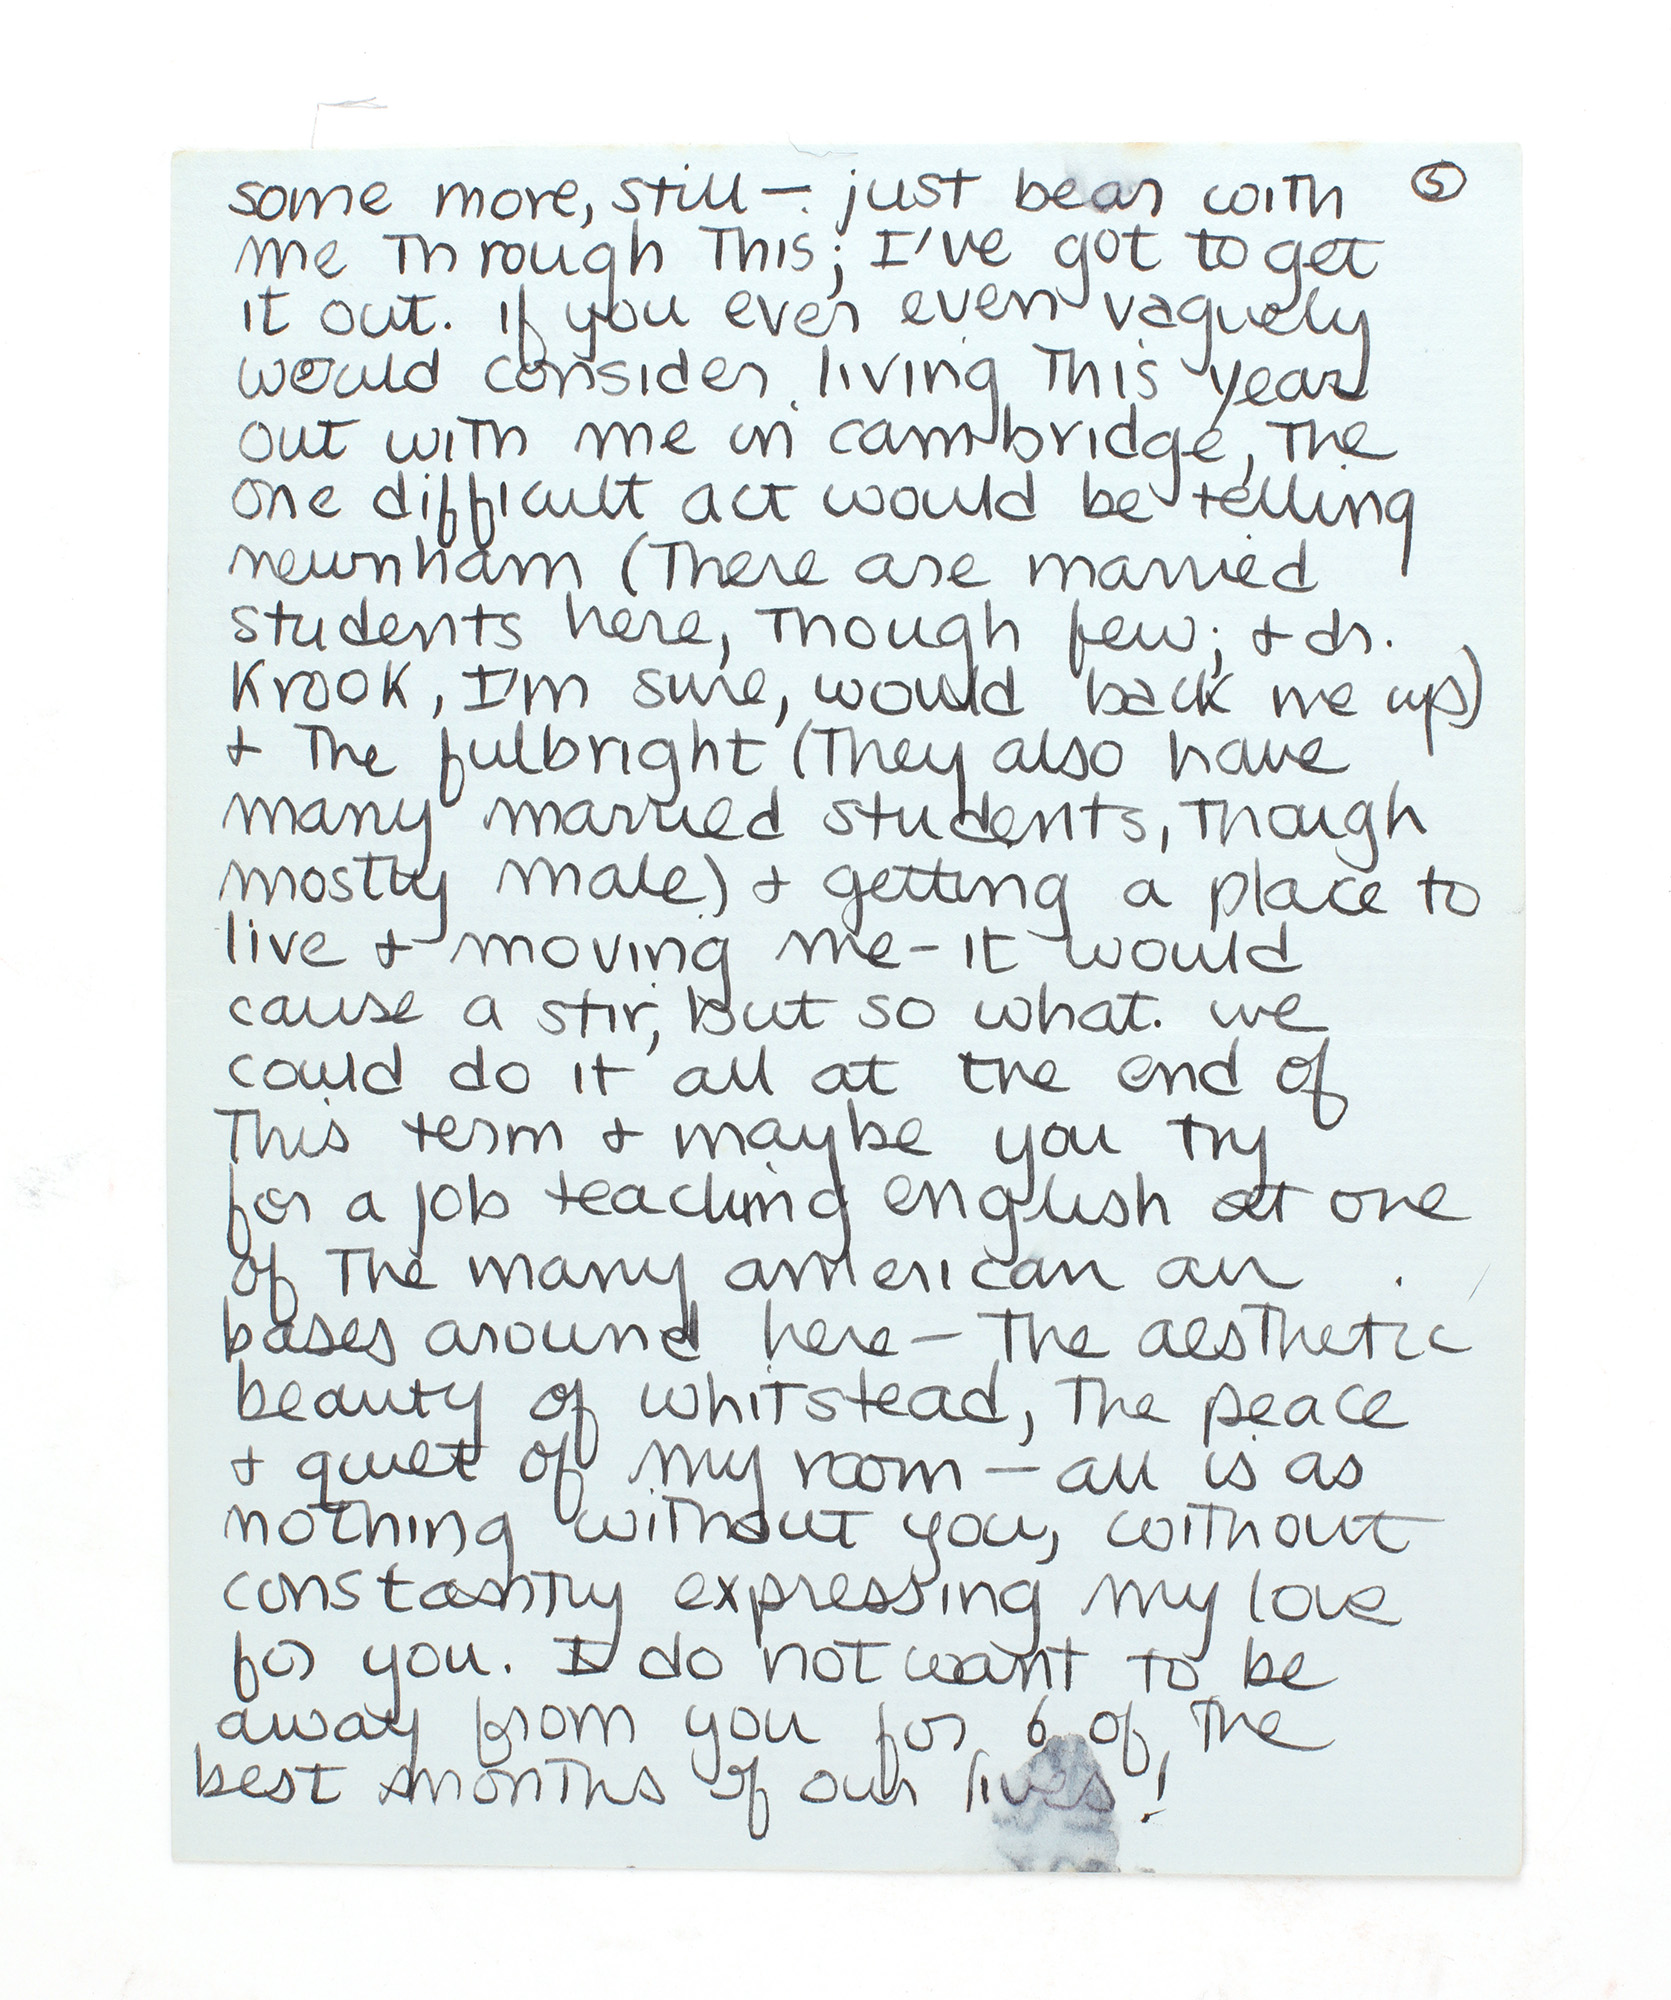 some more, still — just bear with ⑤
me through this; I've got to get
it out. if you ever even vaguely
would consider living this year
out with me in cambridge, the
one difficult act would be telling
newnham (there are married
students here, though few; + dr.
Krook, I'm sure, would back me up)
+ the fulbright (they also have
many married students, though
mostly male) + getting a place to
live + moving me - it would
cause a stir, but so what. we
could do it all at the end of
this term + maybe you try
for a job teaching english at one
of the many american air
bases around here — the aesthetic
beauty of whitstead, the peace
+ quiet of my room — all is as
nothing without you, without
constantly expressing my love
for you. I do not want to be
away from you for 6 of the
best months of our lives!